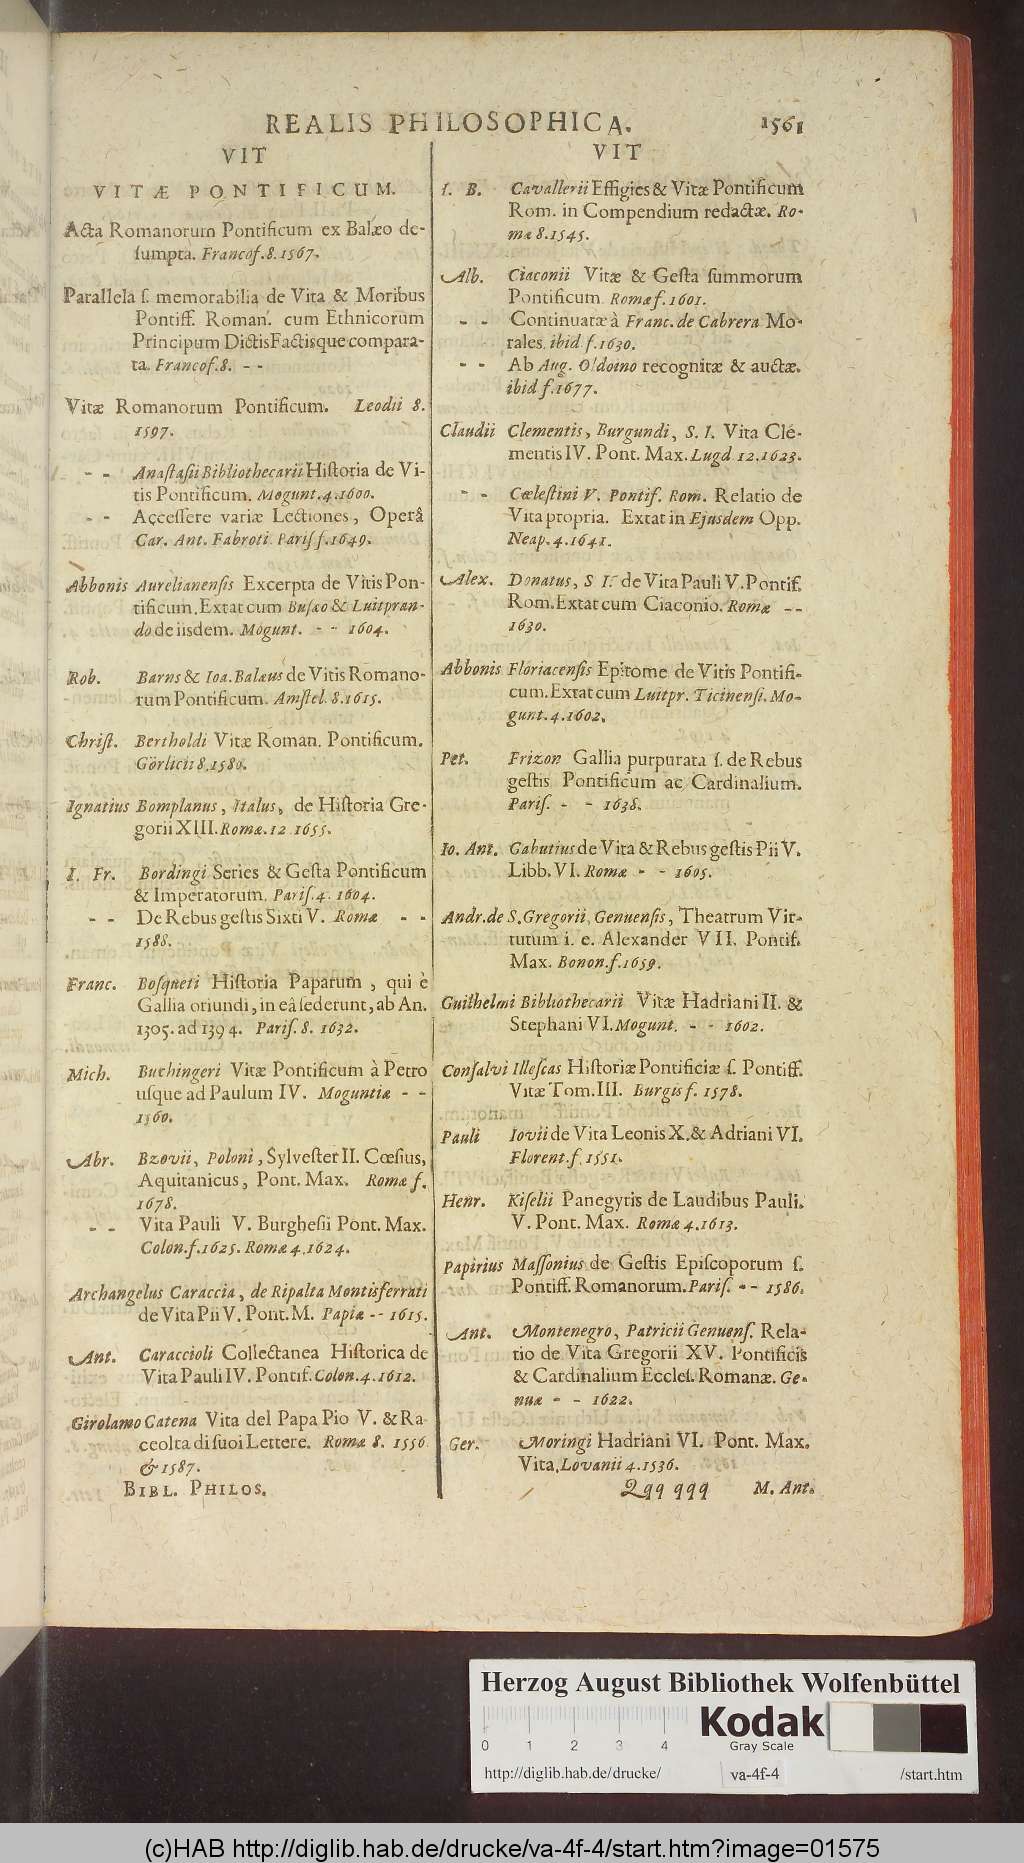 REALIS PHILOSOPHICA. 1561
VIT
VITÆ PONTIFICUM.
Acta Romanorum Pontificum ex Balæo de-
sumpta. Francof. 8. 1567.
Parallela s. memorabilia de Vita & Moribus
Pontiff. Roman. cum Ethnicorum
Principum Dictis Factisque compara-
ta. Francof. 8. - -
Vitæ Romanorum Pontificum. Leodii 8.
1597.
- - Anastasii Bibliothecarii Historia de Vi-
tis Pontificum. Mogunt. 4. 1600.
- - Accessere variæ Lectiones, Operâ
Car. Ant. Fabroti Paris f. 1649.
Abbonis Aurelianensis Excerpta de Vitis Pon-
tificum. Extat cum Busæo & Luitpran-
do de iisdem. Mogunt. - - 1604.
Rob. Barns & Ioa. Balæus de Vitis Romano-
rum Pontificum. Amstel. 8. 1615.
Christ. Bertholdi Vitæ Roman. Pontificum.
Görlicii 8. 1580.
Ignatius Bomplanus, Italus, de Historia Gre-
gorii XIII. Romæ. 12 1655.
I. Fr. Bordingi Series & Gesta Pontificum
& Imperatorum. Paris. 4. 1604.
- - De Rebus gestis Sixti V. Romæ - -
1588.
Franc. Bosqueti Historia Paparum, qui è
Gallia oriundi, in eâ sederunt, ab An.
1305. ad 1394. Paris. 8. 1632.
Mich. Buchingeri Vitæ Pontificum à Petro
usque ad Paulum IV. Moguntiæ - -
1560.
Abr. Bzovii, Poloni, Sylvester II. Cœsius,
Aquitanicus, Pont. Max. Romæ f.
1678.
- - Vita Pauli V. Burghesii Pont. Max.
Colon. f. 1625. Romæ 4. 1624.
Archangelus Caraccia, de Ripalta Montisferrati
de Vita Pii V. Pont. M. Papiæ - - 1615.
Ant. Caraccioli Collectanea Historica de
Vita Pauli IV. Pontif. Colon. 4. 1612.
Girolamo Catena Vita del Papa Pio V. & Ra
ceolta di suoi Lettere. Romæ 8. 1556
& 1587.
BIBL. PHILOS.
VIT
I. B. Cavallerii Effigies & Vitæ Pontificum
Rom. in Compendium redactæ. Ro-
mæ 8. 1545.
Alb. Ciaconii Vitæ & Gesta summorum
Pontificum Romæ f. 1601.
- - Continuatæ à Franc. de Cabrera Mo-
rales. ibid f. 1630.
- - Ab Aug. Oldoino recognitæ & auctæ.
ibid f. 1677.
Claudii Clementis, Burgundi, S. I. Vita Cle-
mentis IV. Pont. Max. Lugd 12. 1623.
- - Cœlestini V. Pontif. Rom. Relatio de
Vita propria. Extat in Ejusdem Opp.
Neap. 4. 1641.
Alex. Donatus, S I. de Vita Pauli V. Pontif.
Rom. Extat cum Ciaconio. Romæ - -
1630.
Abbonis Floriacensis Epitome de Vitis Pontifi-
cum. Extat cum Luitpr. Ticinensi. Mo-
gunt. 4. 1602.
Pet. Frizon Gallia purpurata s. de Rebus
gestis Pontificum ac Cardinalium.
Paris. - - 1638.
Io. Ant. Gabutius de Vita & Rebus gestis Pii V.
Libb. VI. Romæ - - 1605.
Andr. de S. Gregorii, Genuensis, Theatrum Vir-
tutum i. e. Alexander VII. Pontif.
Max. Bonon. f. 1659.
Guilhelmi Bibliothecarii Vitæ Hadriani II. &
Stephani VI. Mogunt. - - 1602.
Consalvi Illescas Historiæ Pontificiæ s. Pontiff.
Vitæ Tom. III. Burgis f. 1578.
Pauli Iovii de Vita Leonis X. & Adriani VI.
Florent. f. 1551.
Henr. Kiselii Panegyris de Laudibus Pauli.
V. Pont. Max. Romæ 4. 1613.
Papirius Massonius de Gestis Episcoporum s.
Pontiff. Romanorum. Paris. - - 1586.
Ant. Montenegro, Patricii Genuens. Rela-
tio de Vita Gregorii XV. Pontificis
& Cardinalium Eccles. Romanæ. Ge-
nuæ - - 1622.
Ger. Moringi Hadriani VI. Pont. Max.
Vita. Lovanii 4. 1536.
Qqq qqq M. Ant.
Herzog August Bibliothek Wolfenbüttel
Kodak
Gray Scale
0 1 2 3 4
http://diglib.hab.de/drucke/ va-4f-4 /start.htm
(c)HAB http://diglib.hab.de/drucke/va-4f-4/start.htm?image=01575